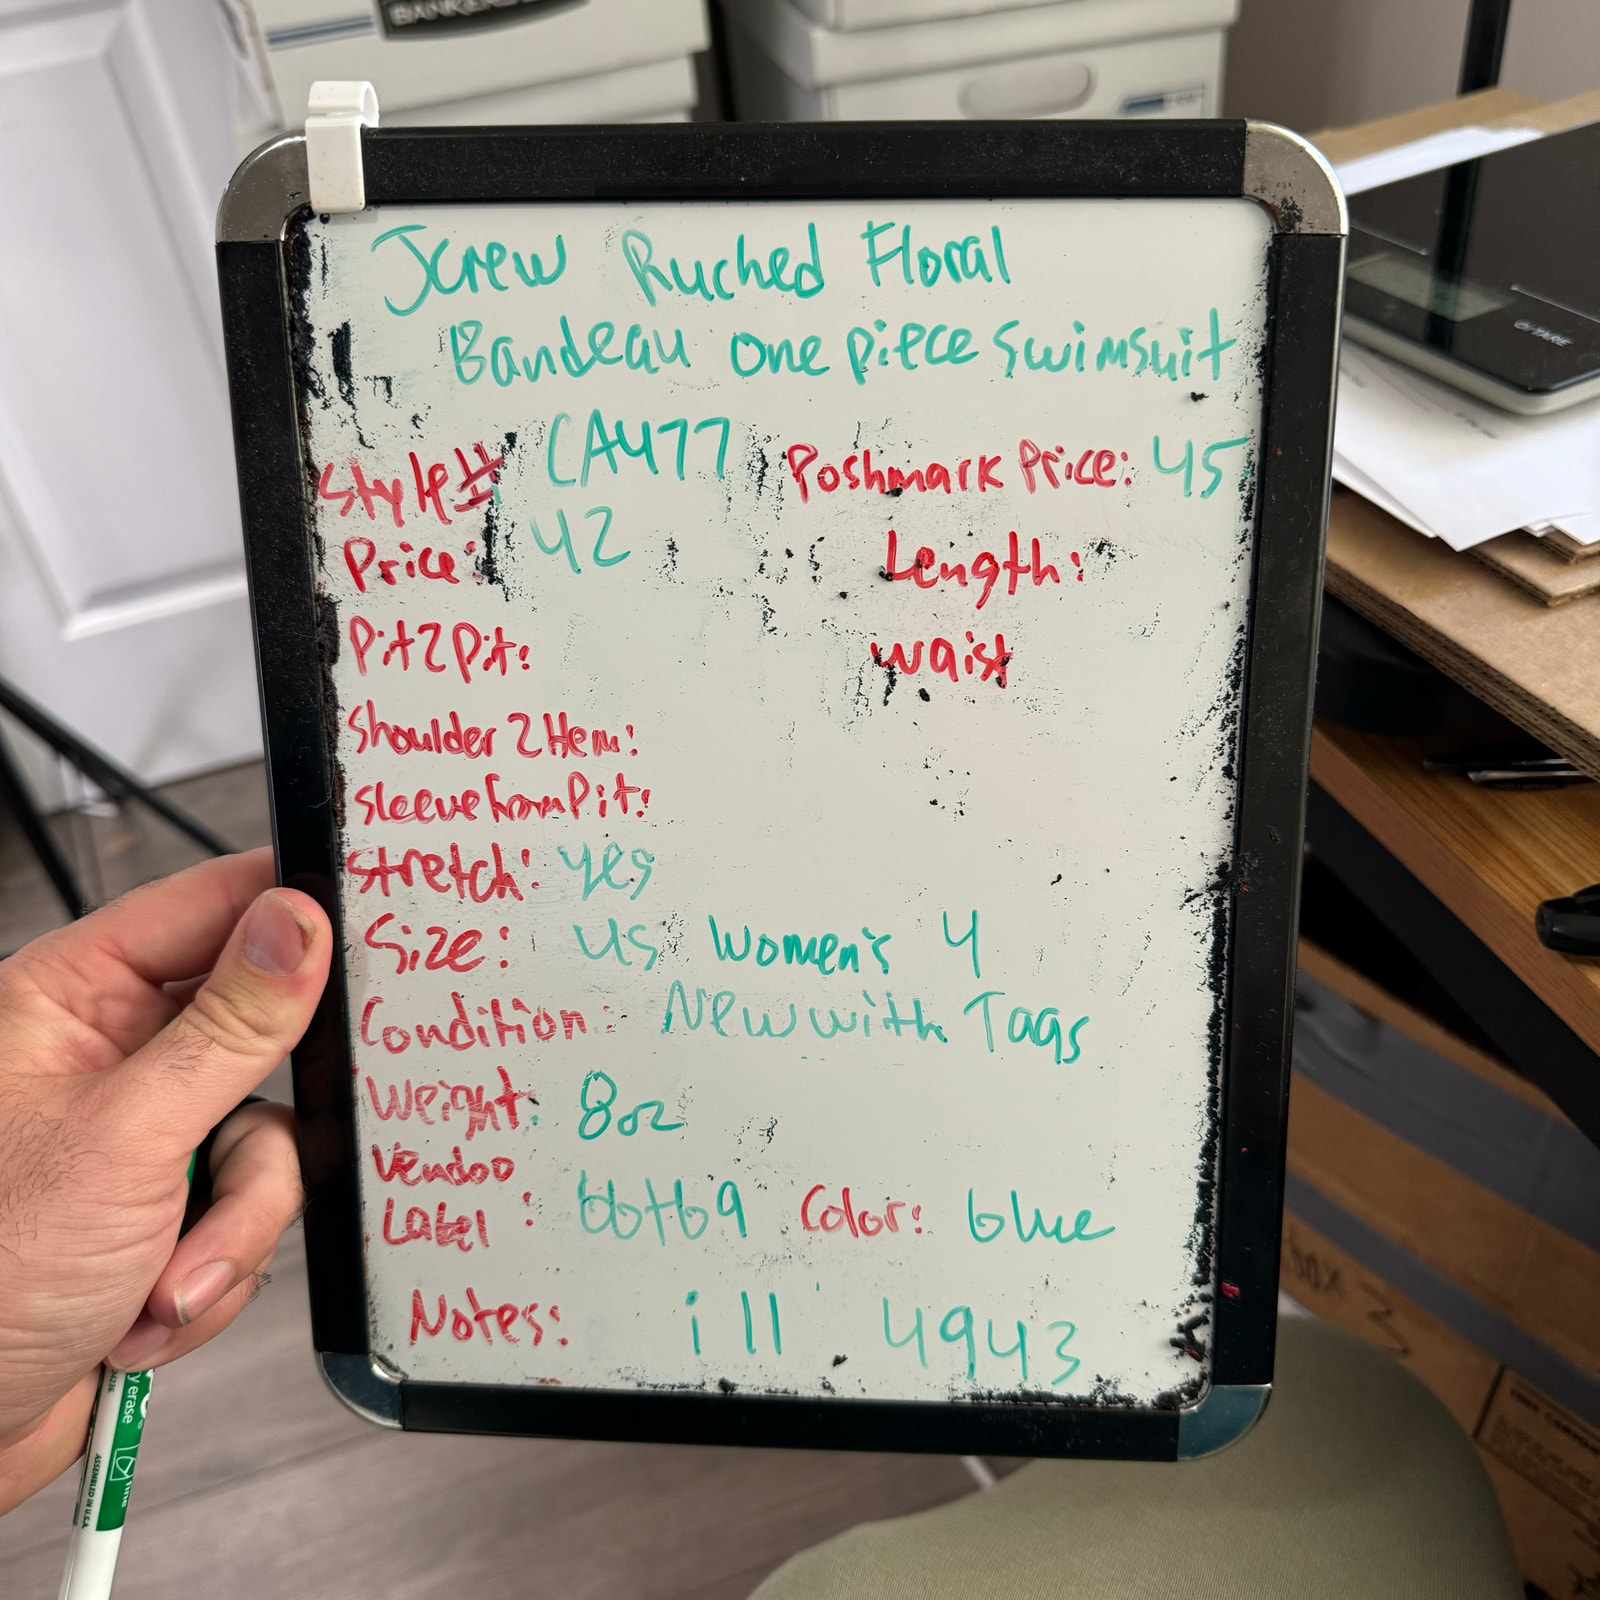 BANKERS
Jcrew Ruched Floral
Bandeau one piece swimsuit
Style# CA477 Poshmark Price: 45
Price: 42 Length:
Pit2Pit: waist
Shoulder 2 Hem:
sleeve from Pit:
stretch: yes
Size: US Women's 4
Condition: New with Tags
Weight: 8oz
Vendoo
Label: bbtb9 Color: blue
Notes: ill 4943
O/TARE
y erase
ASSEMBLED IN U.S.A.
BOX 3